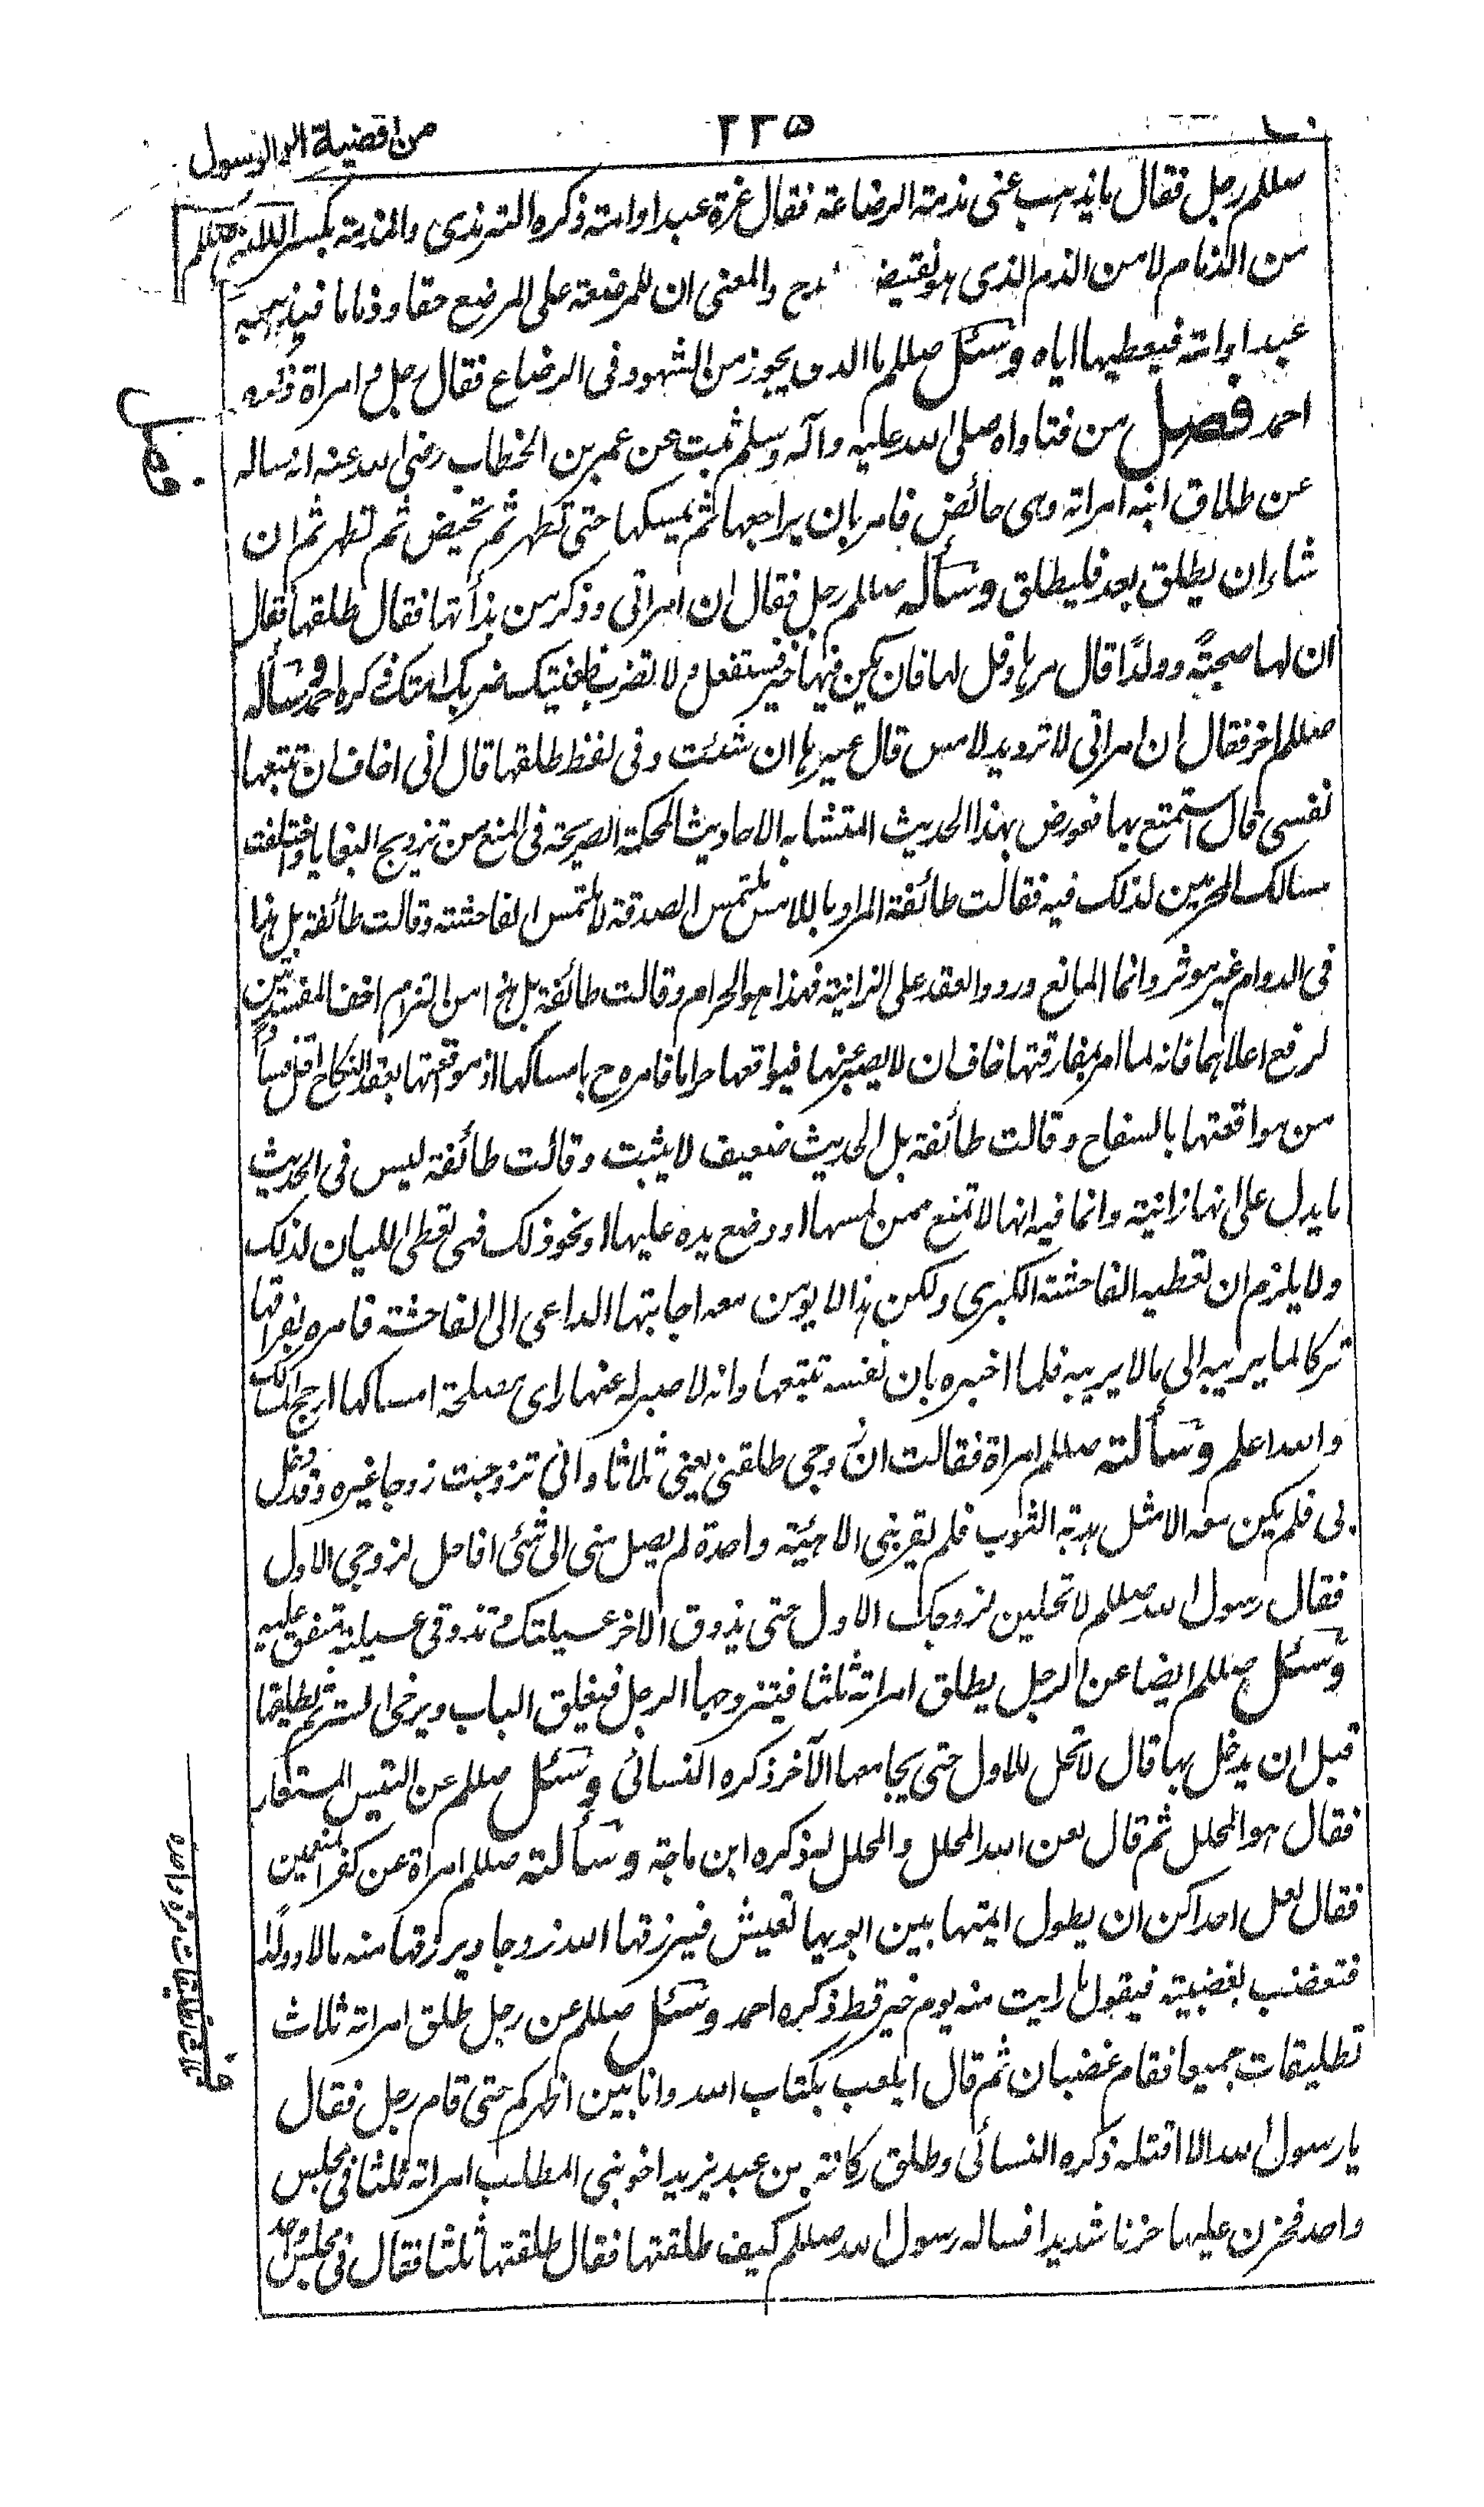 من اقضية الرسول
٢٢٥
صللم رجل فقال ما يذهب عنى مذمة الرضاعة فقال غرة عبد او امة ذكره الترمذى والمذمة بكسر الذال
من الذمام لا من الذم الذى هو نقيض المدح والمعنى ان للمرضعة على المرضع حقا وذماما فيذهبه
عبد او امة فيعطيها اياه وسئل صللم ما الذى يجوز من الشهود فى الرضاع فقال رجل و امراة ذكره
احمد فصل من فتاواه صلى الله عليه وآله وسلم ثبت عن عمر بن الخطاب رضى الله عنه انه ساله
عن طلاق ابنه امراته وهى حائض فامر بان يراجعها ثم يمسكها حتى تطهر ثم تحيض ثم تطهر ثم ان
شاء ان يطلق بعد فليطلق وسأله صللم رجل فقال ان امراتى وذكر من بذأتها فقال طلقها فقال
ان لها صحبةً وولدًا قال مرها وقل لها فان يكن فيها خير فستفعل ولا تضرب ظعينتك ضربك امتك ذكره احمد وسأله
صللم اخر فقال ان امراتى لا ترد يد لامس قال غيرها ان شئت وفى لفظ طلقها قال انى اخاف ان تتبعها
نفسى قال استمتع بها فعورض بهذا الحديث المتشابه الاحاديث المحكمة الصريحة فى المنع من تزويج البغايا واختلفت
مسالك المحرمين لذلك فيه فقالت طائفة المراد باللامس ملتمس الصدقة لا ملتمس الفاحشة وقالت طائفة بل هذا
فى الدوام غير موثر وانما المانع ورود العقد على الزانية فهذا هو الحرام وقالت طائفة بل هذا من التزام اخف المفسدتين
لرفع اعلاهما فانه لما امر بمفارقتها خاف ان لا يصبر عنها فيواقعها حراما فامره ح بامساكها اذ مواقعتها بعقد النكاح اقل فسادا
من مواقعتها بالسفاح وقالت طائفة بل الحديث ضعيف لا يثبت وقالت طائفة ليس فى الحديث
ما يدل على انها زانية وانما فيه انها لا تمنع ممن لمسها او وضع يده عليها او نحو ذلك فهى تعطى الليان لذلك
ولا يلزم ان تعطيه الفاحشة الكبرى ولكن هذا لا يومن معه اجابتها الداعى الى الفاحشة فامره بفراقها
تركا لما يريبه الى ما لا يريبه فلما اخبره بان نفسه تتبعها وانه لا صبر له عنها راى مصلحة امساكها ارجح
والله اعلم وسألته صللم امراة فقالت ان زوجى طلقنى يعنى ثلاثا وانى تزوجت زوجا غيره وقد دخل
بى فلم يكن معه الا مثل هدبة الثوب فلم يقربنى الا هيئة واحدة لم يصل منى الى شئ افاحل لزوجى الاول
فقال رسول الله صللم لا تحلين لزوجك الاول حتى يذوق الاخر عسيلتك وتذوقى عسيلته متفق عليه
وسئل صللم ايضا عن الرجل يطلق امراته ثلثا فيتزوجها الرجل فيغلق الباب ويرخى الستر ثم يطلقها
قبل ان يدخل بها قال لا تحل للاول حتى يجامعها الآخر ذكره النسائى وسئل صللم عن التيس المستعار
فقال هو المحلل ثم قال لعن الله المحلل والمحلل له ذكره ابن ماجة وسألته صللم امراة عن كفر المنعمين
فقال لعل احداكن ان يطول ايمتها بين ابويها تعيش فيرزقها الله زوجا ويرزقها منه مالا وولدًا
فتغضب الغضبة فيقول ما رايت منه يوم خير قط ذكره احمد وسئل صللم عن رجل طلق امراته ثلاث
تطليقات جميعا فقام غضبان ثم قال ايلعب بكتاب الله وانا بين اظهركم حتى قام رجل فقال
يا رسول الله الا اقتله ذكره النسائى وطلق ركانة بن عبد يزيد اخو بنى المطلب امراته ثلثا فى مجلس
واحد فحزن عليها حزنا شديدا فساله رسول الله صللم كيف طلقتها فقال طلقتها ثلثا فقال فى مجلس واحد